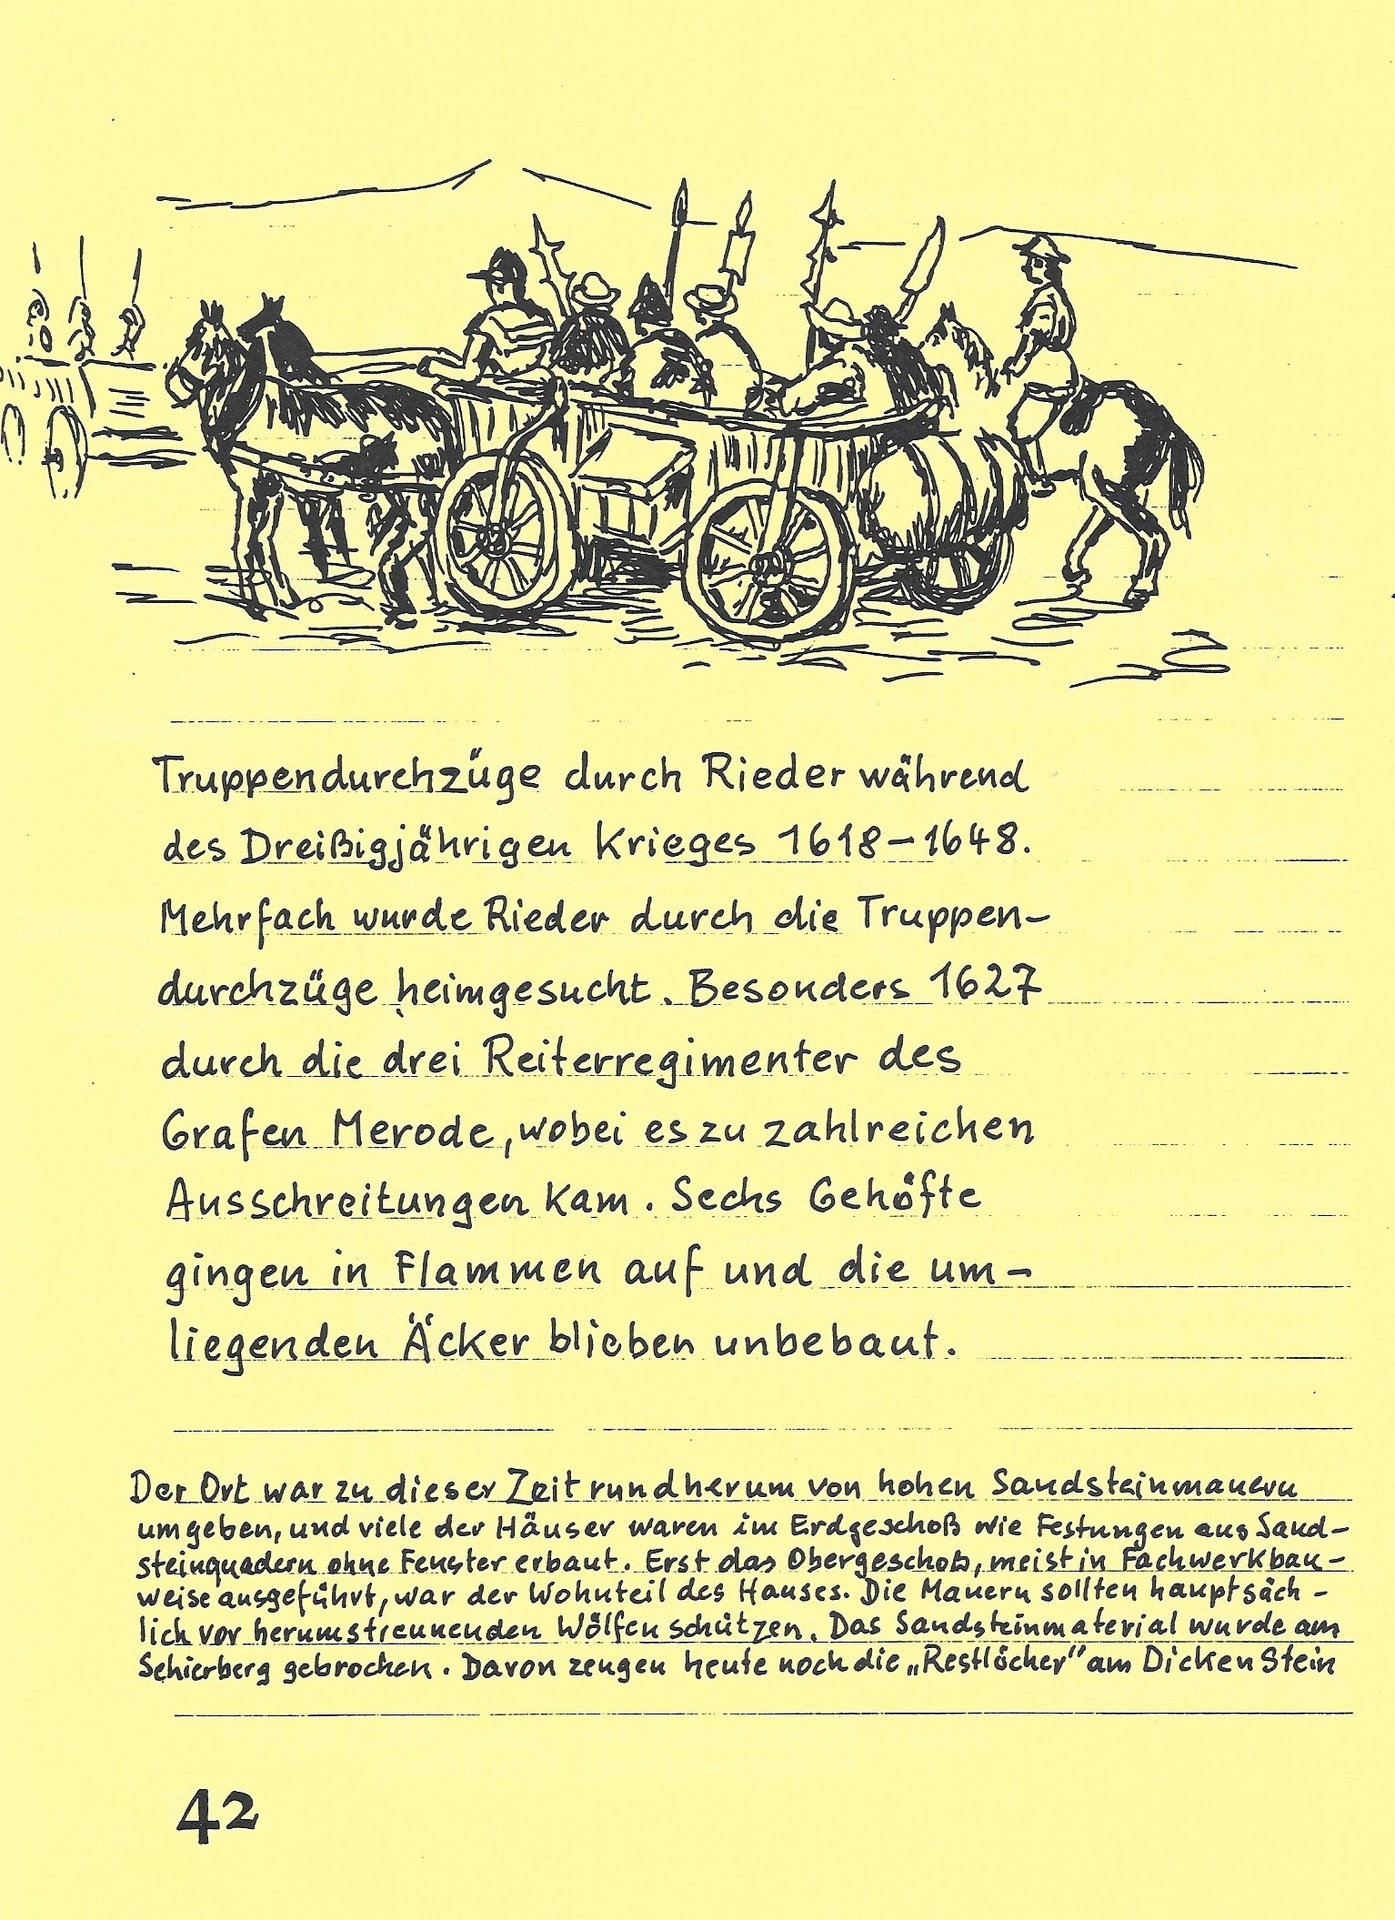 Truppendurchzüge durch Rieder während
des Dreißigjährigen Krieges 1618-1648.
Mehrfach wurde Rieder durch die Truppen-
durchzüge heimgesucht. Besonders 1627
durch die drei Reiterregimenter des
Grafen Merode, wobei es zu zahlreichen
Ausschreitungen kam. Sechs Gehöfte
gingen in Flammen auf und die um-
liegenden Äcker blieben unbebaut.
Der Ort war zu dieser Zeit rundherum von hohen Sandsteinmauern
umgeben, und viele der Häuser waren im Erdgeschoß wie Festungen aus Sand-
steinquadern ohne Fenster erbaut. Erst das Obergeschoß, meist in Fachwerkbau-
weise ausgeführt, war der Wohnteil des Hauses. Die Mauern sollten hauptsäch-
lich vor herumstreunenden Wölfen schützen. Das Sandsteinmaterial wurde am
Schierberg gebrochen. Davon zeugen heute noch die „Restlöcher" am Dicken Stein
42